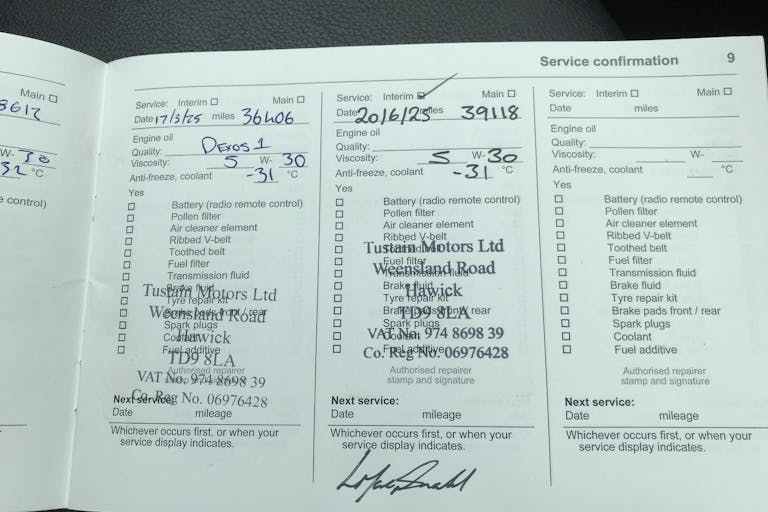 Main ☐
8612
W- 30
32 °C
e control)
Service confirmation 9
Service: Interim ☐ Main ☐
Date 17/3/25 miles 36406
Engine oil
Quality: DEXOS 1
Viscosity: 5 W- 30
Anti-freeze, coolant -31 °C
Yes
☐ Battery (radio remote control)
☐ Pollen filter
☐ Air cleaner element
☐ Ribbed V-belt
☐ Toothed belt
☐ Fuel filter
☐ Transmission fluid
☐ Brake fluid
☐ Tyre repair kit
☐ Brake pads front / rear
☐ Spark plugs
☐ Coolant
☐ Fuel additive
Authorised repairer
Tustain Motors Ltd
Weensland Road
Hawick
TD9 8LA
VAT No. 974 8698 39
Co. Reg No. 06976428
Next service:
Date mileage
Whichever occurs first, or when your
service display indicates.
Service: Interim ☑ Main ☐
Date 20/6/25 miles 39118
Engine oil
Quality:
Viscosity: 5 W- 30
Anti-freeze, coolant -31 °C
Yes
☐ Battery (radio remote control)
☐ Pollen filter
☐ Air cleaner element
☐ Ribbed V-belt
☐ Toothed belt
☐ Fuel filter
☐ Transmission fluid
☐ Brake fluid
☐ Tyre repair kit
☐ Brake pads front / rear
☐ Spark plugs
☐ Coolant
☐ Fuel additive
Tustain Motors Ltd
Weensland Road
Hawick
TD9 8LA
VAT No. 974 8698 39
Co. Reg No. 06976428
Authorised repairer
stamp and signature
Next service:
Date mileage
Whichever occurs first, or when your
service display indicates.
Service: Interim ☐ Main ☐
Date miles
Engine oil
Quality:
Viscosity: W-
Anti-freeze, coolant °C
Yes
☐ Battery (radio remote control)
☐ Pollen filter
☐ Air cleaner element
☐ Ribbed V-belt
☐ Toothed belt
☐ Fuel filter
☐ Transmission fluid
☐ Brake fluid
☐ Tyre repair kit
☐ Brake pads front / rear
☐ Spark plugs
☐ Coolant
☐ Fuel additive
Authorised repairer
stamp and signature
Next service:
Date mileage
Whichever occurs first, or when your
service display indicates.